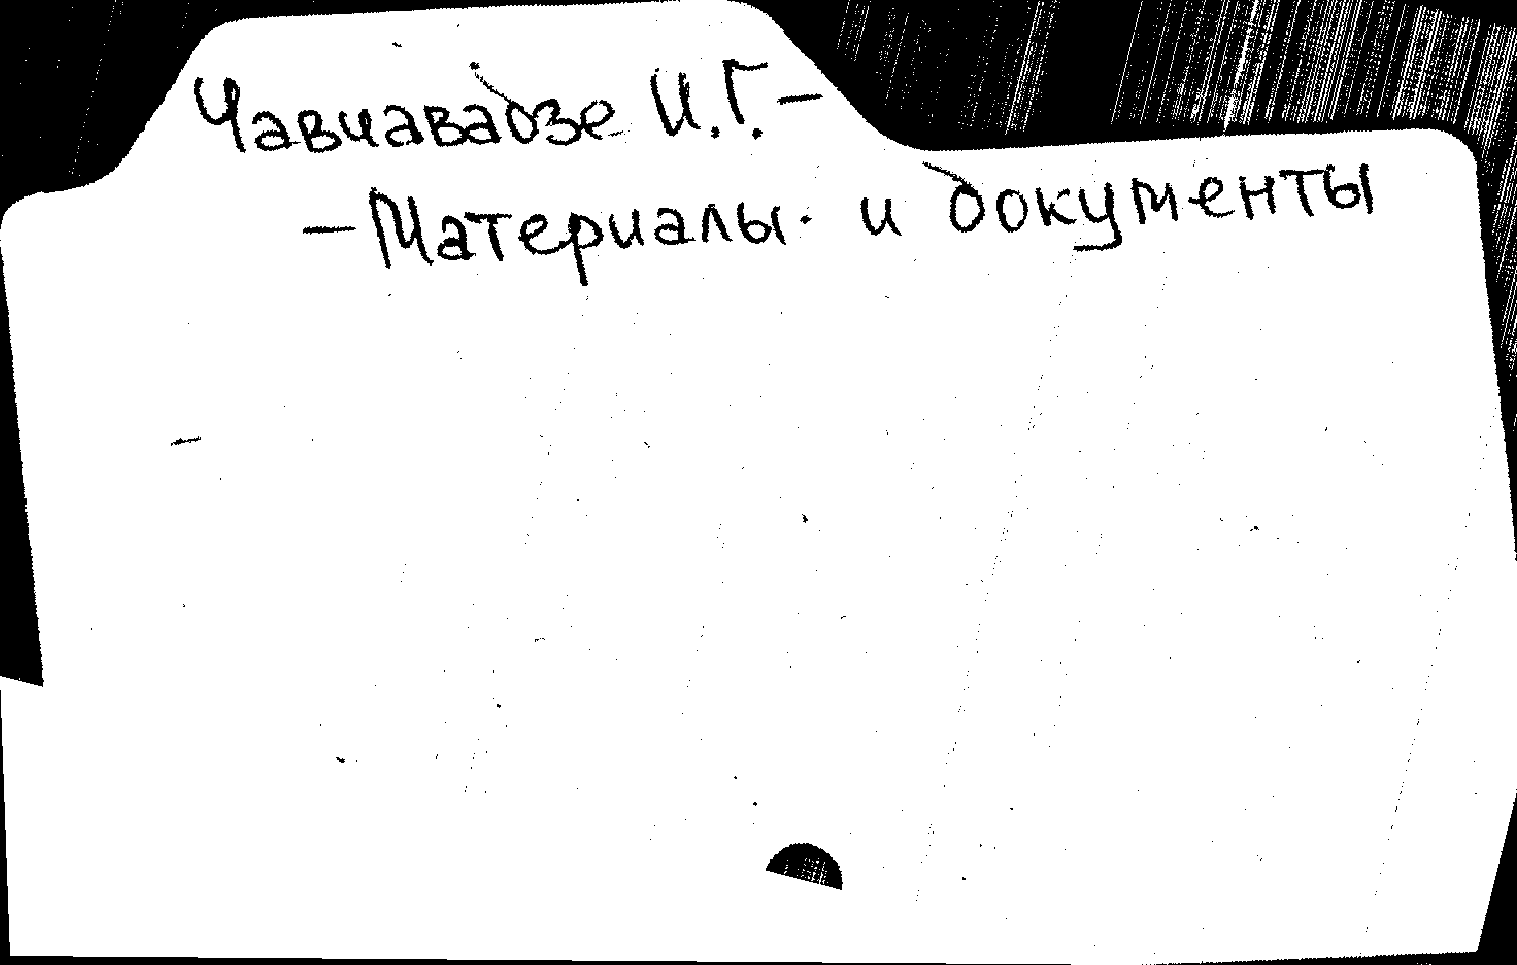 Чавчавадзе И.Г.—
— Материалы и документы